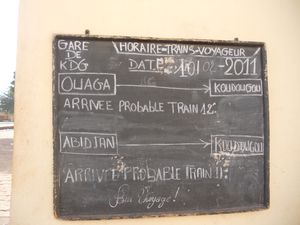 GARE DE KDG
HORAIRE-TRAINS-VOYAGEUR
DATE: 10/02-2011
OUAGA KOUDOUGOU
ARRIVEE PROBABLE TRAIN 12:
ABIDJAN KOUDOUGOU
ARRIVEE PROBABLE TRAIN 11:
Bon Voyage!